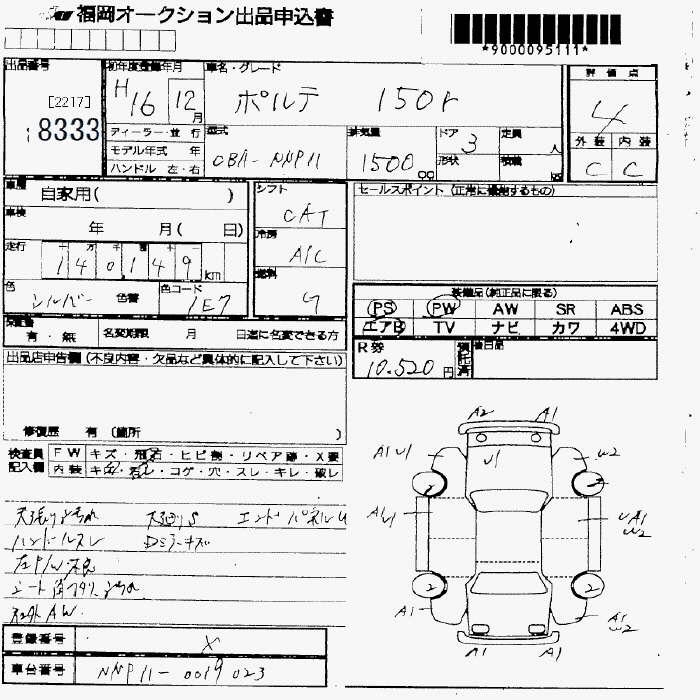 福岡オークション出品申込書
*9000095111*
出品番号
[2217]
8333
初年度登録年月
H16 12月
車名・グレード
ポルテ 150r
評価点
4
外装 内装
C C
ディーラー・並行
モデル年式 年
ハンドル 左・右
型式
CBA-NNP11
排気量
1500 cc
ドア 3
形状
定員 人
積載
車歴
自家用( )
車検
年 月( 日)
走行
十 万 千 百 十 一
140149 km
色 シルバー 色替
色コード 1E7
シフト
CAT
冷房
A/C
燃料
G
セールスポイント (正常に機能するもの)
装備品(純正品に限る)
PS PW AW SR ABS
エアB TV ナビ カワ 4WD
R券
10.520円
預託済
後日品
保証書
有・紙 名変期限 月 日迄に名変できる方
出品店申告欄(不良内容・欠品など具体的に記入して下さい)
修復歴 有 (箇所 )
検査員記入欄
FW キズ・飛石・ヒビ割・リペア跡・X要
内装 キズ・コゲ・穴・スレ・キレ・破レ
天張りよごれ エンドパネルU
ハンドルスレ Dミラーキズ
左P/W不良
社外AW
A2 A1
A1 U1 U1 U2
A1 U1 UA1
2 2
A1 A1
A1 A1
登録番号 X
車台番号 NNP11-0019023